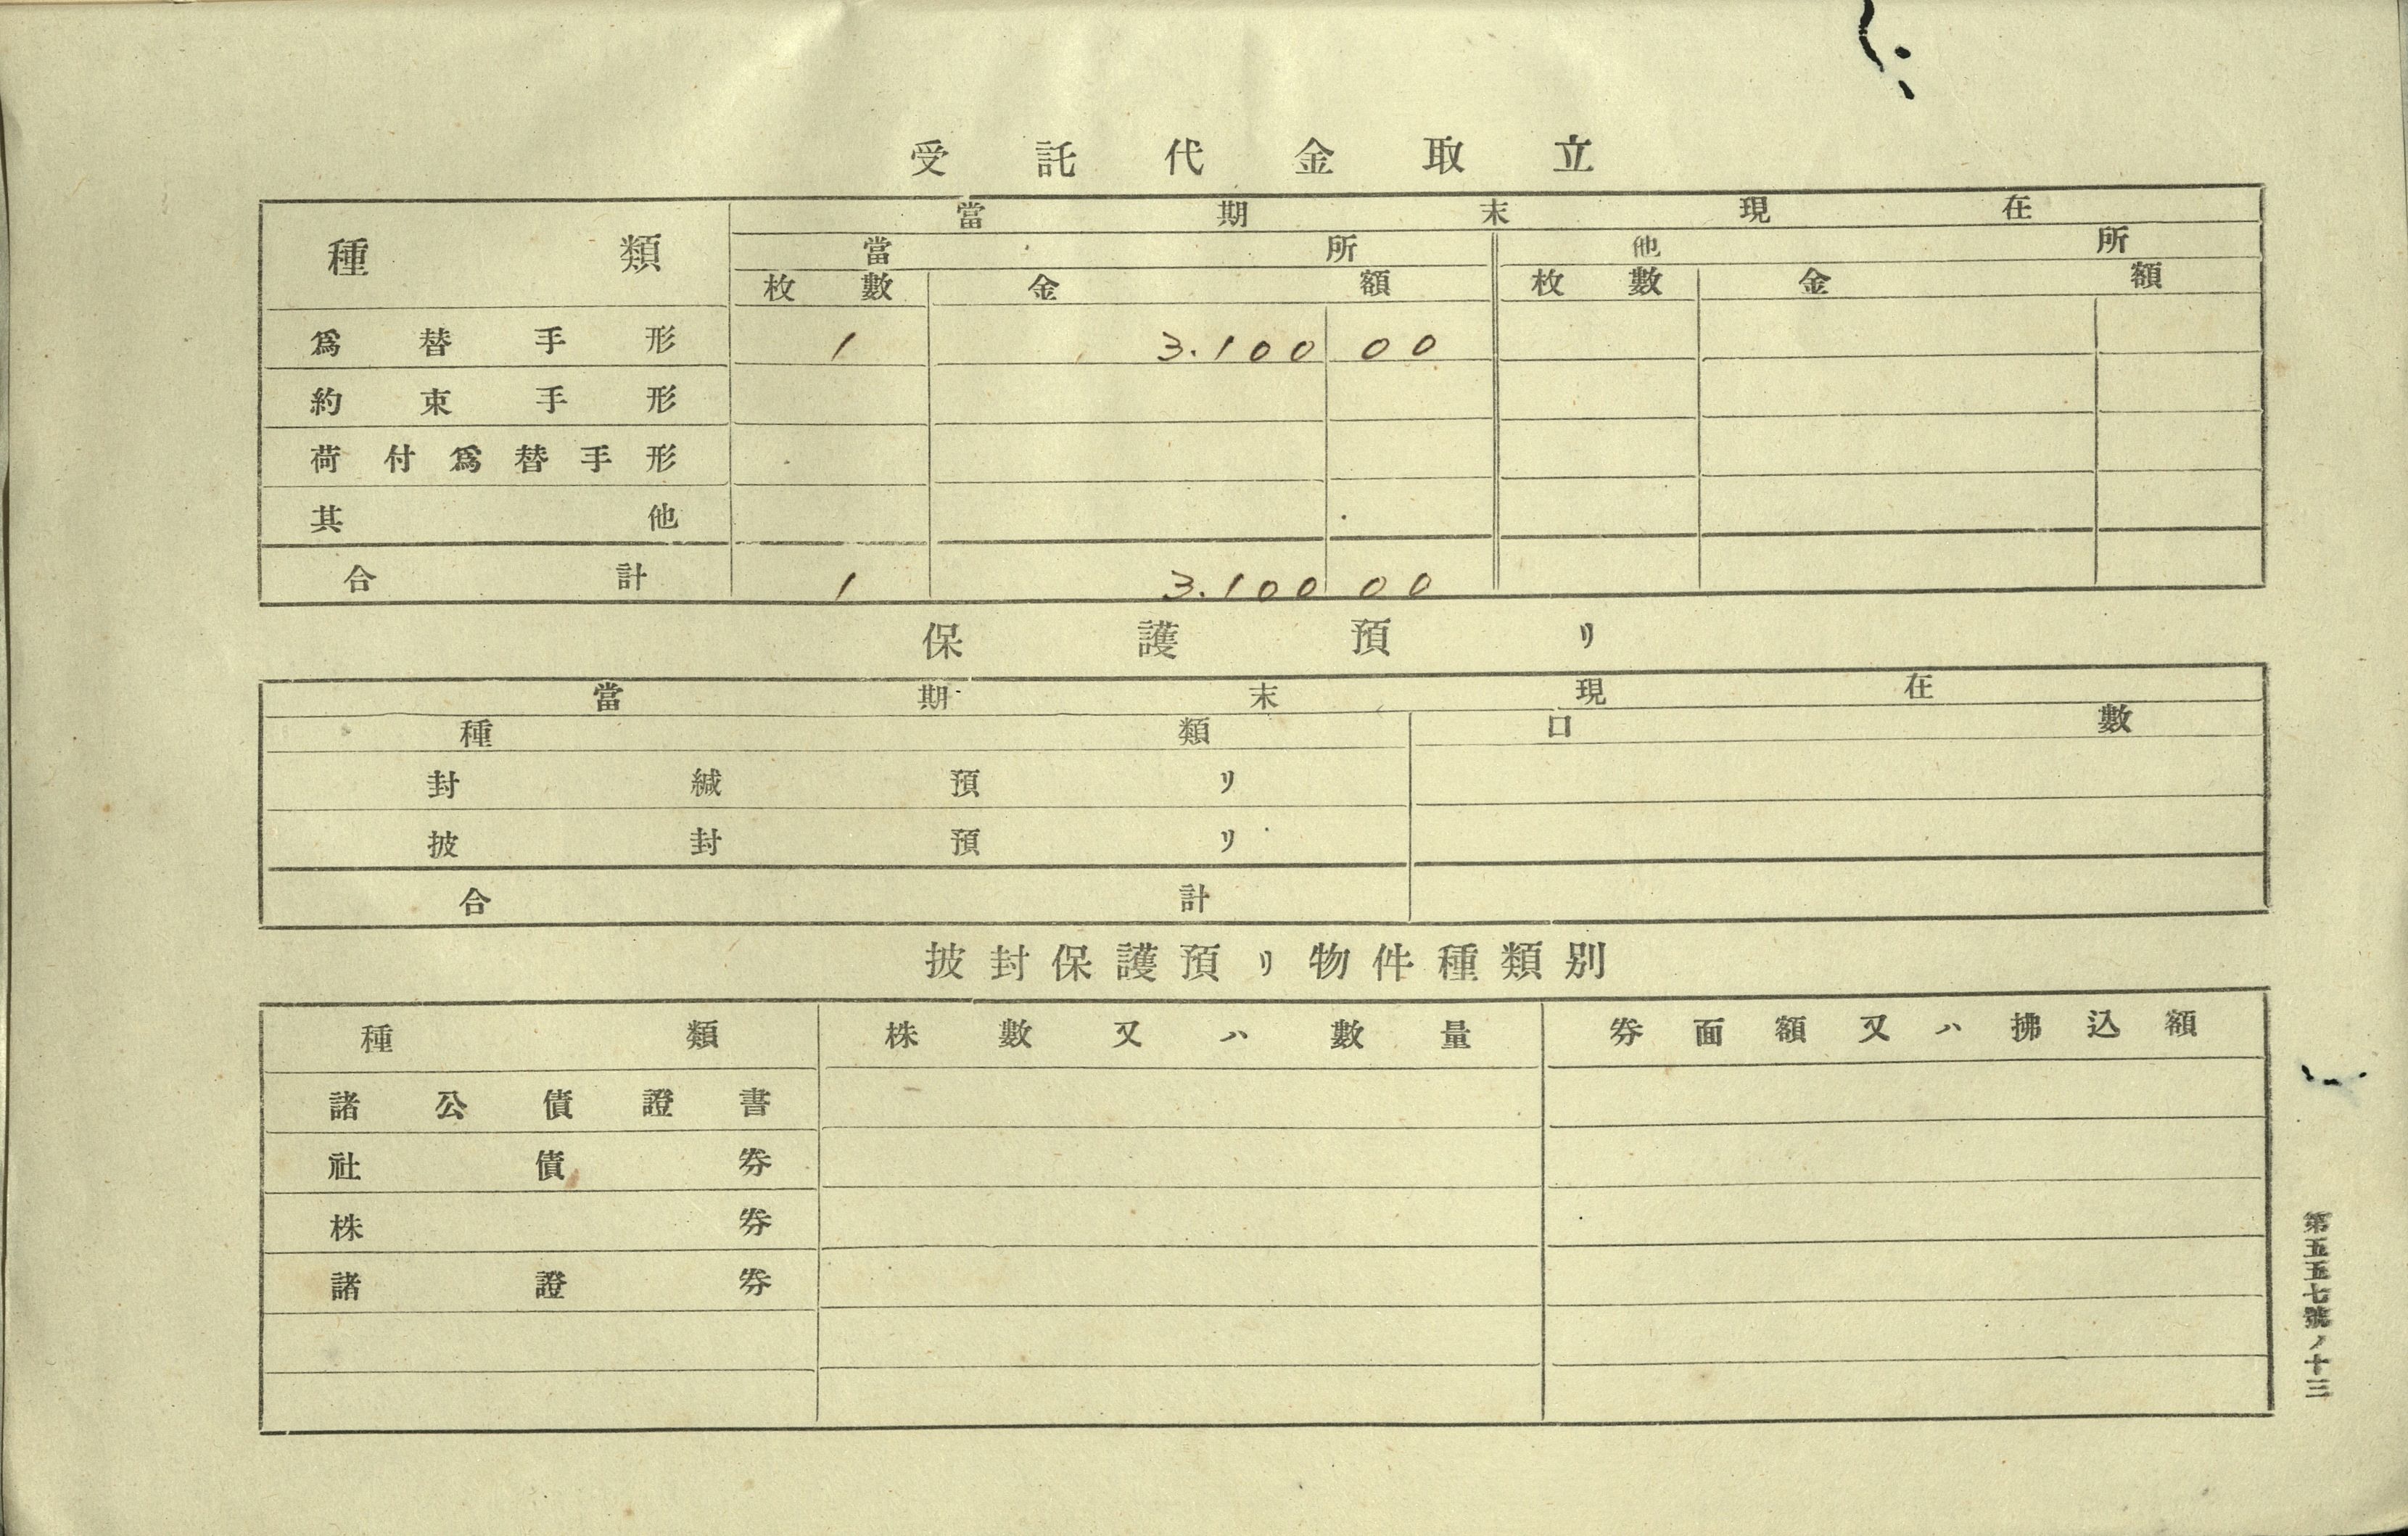 受託代金取立
種類 當期末現在
當所 他所
枚數 金額 枚數 金額
爲替手形 1 3.100 00
約束手形
荷付爲替手形
其他
合計 1 3.100 00
保護預リ
當期末現在
種類 口數
封緘預リ
披封預リ
合計
披封保護預リ物件種類別
種類 株數又ハ數量 券面額又ハ拂込額
諸公債證書
社債券
株券
諸證券
第五五七號ノ十三